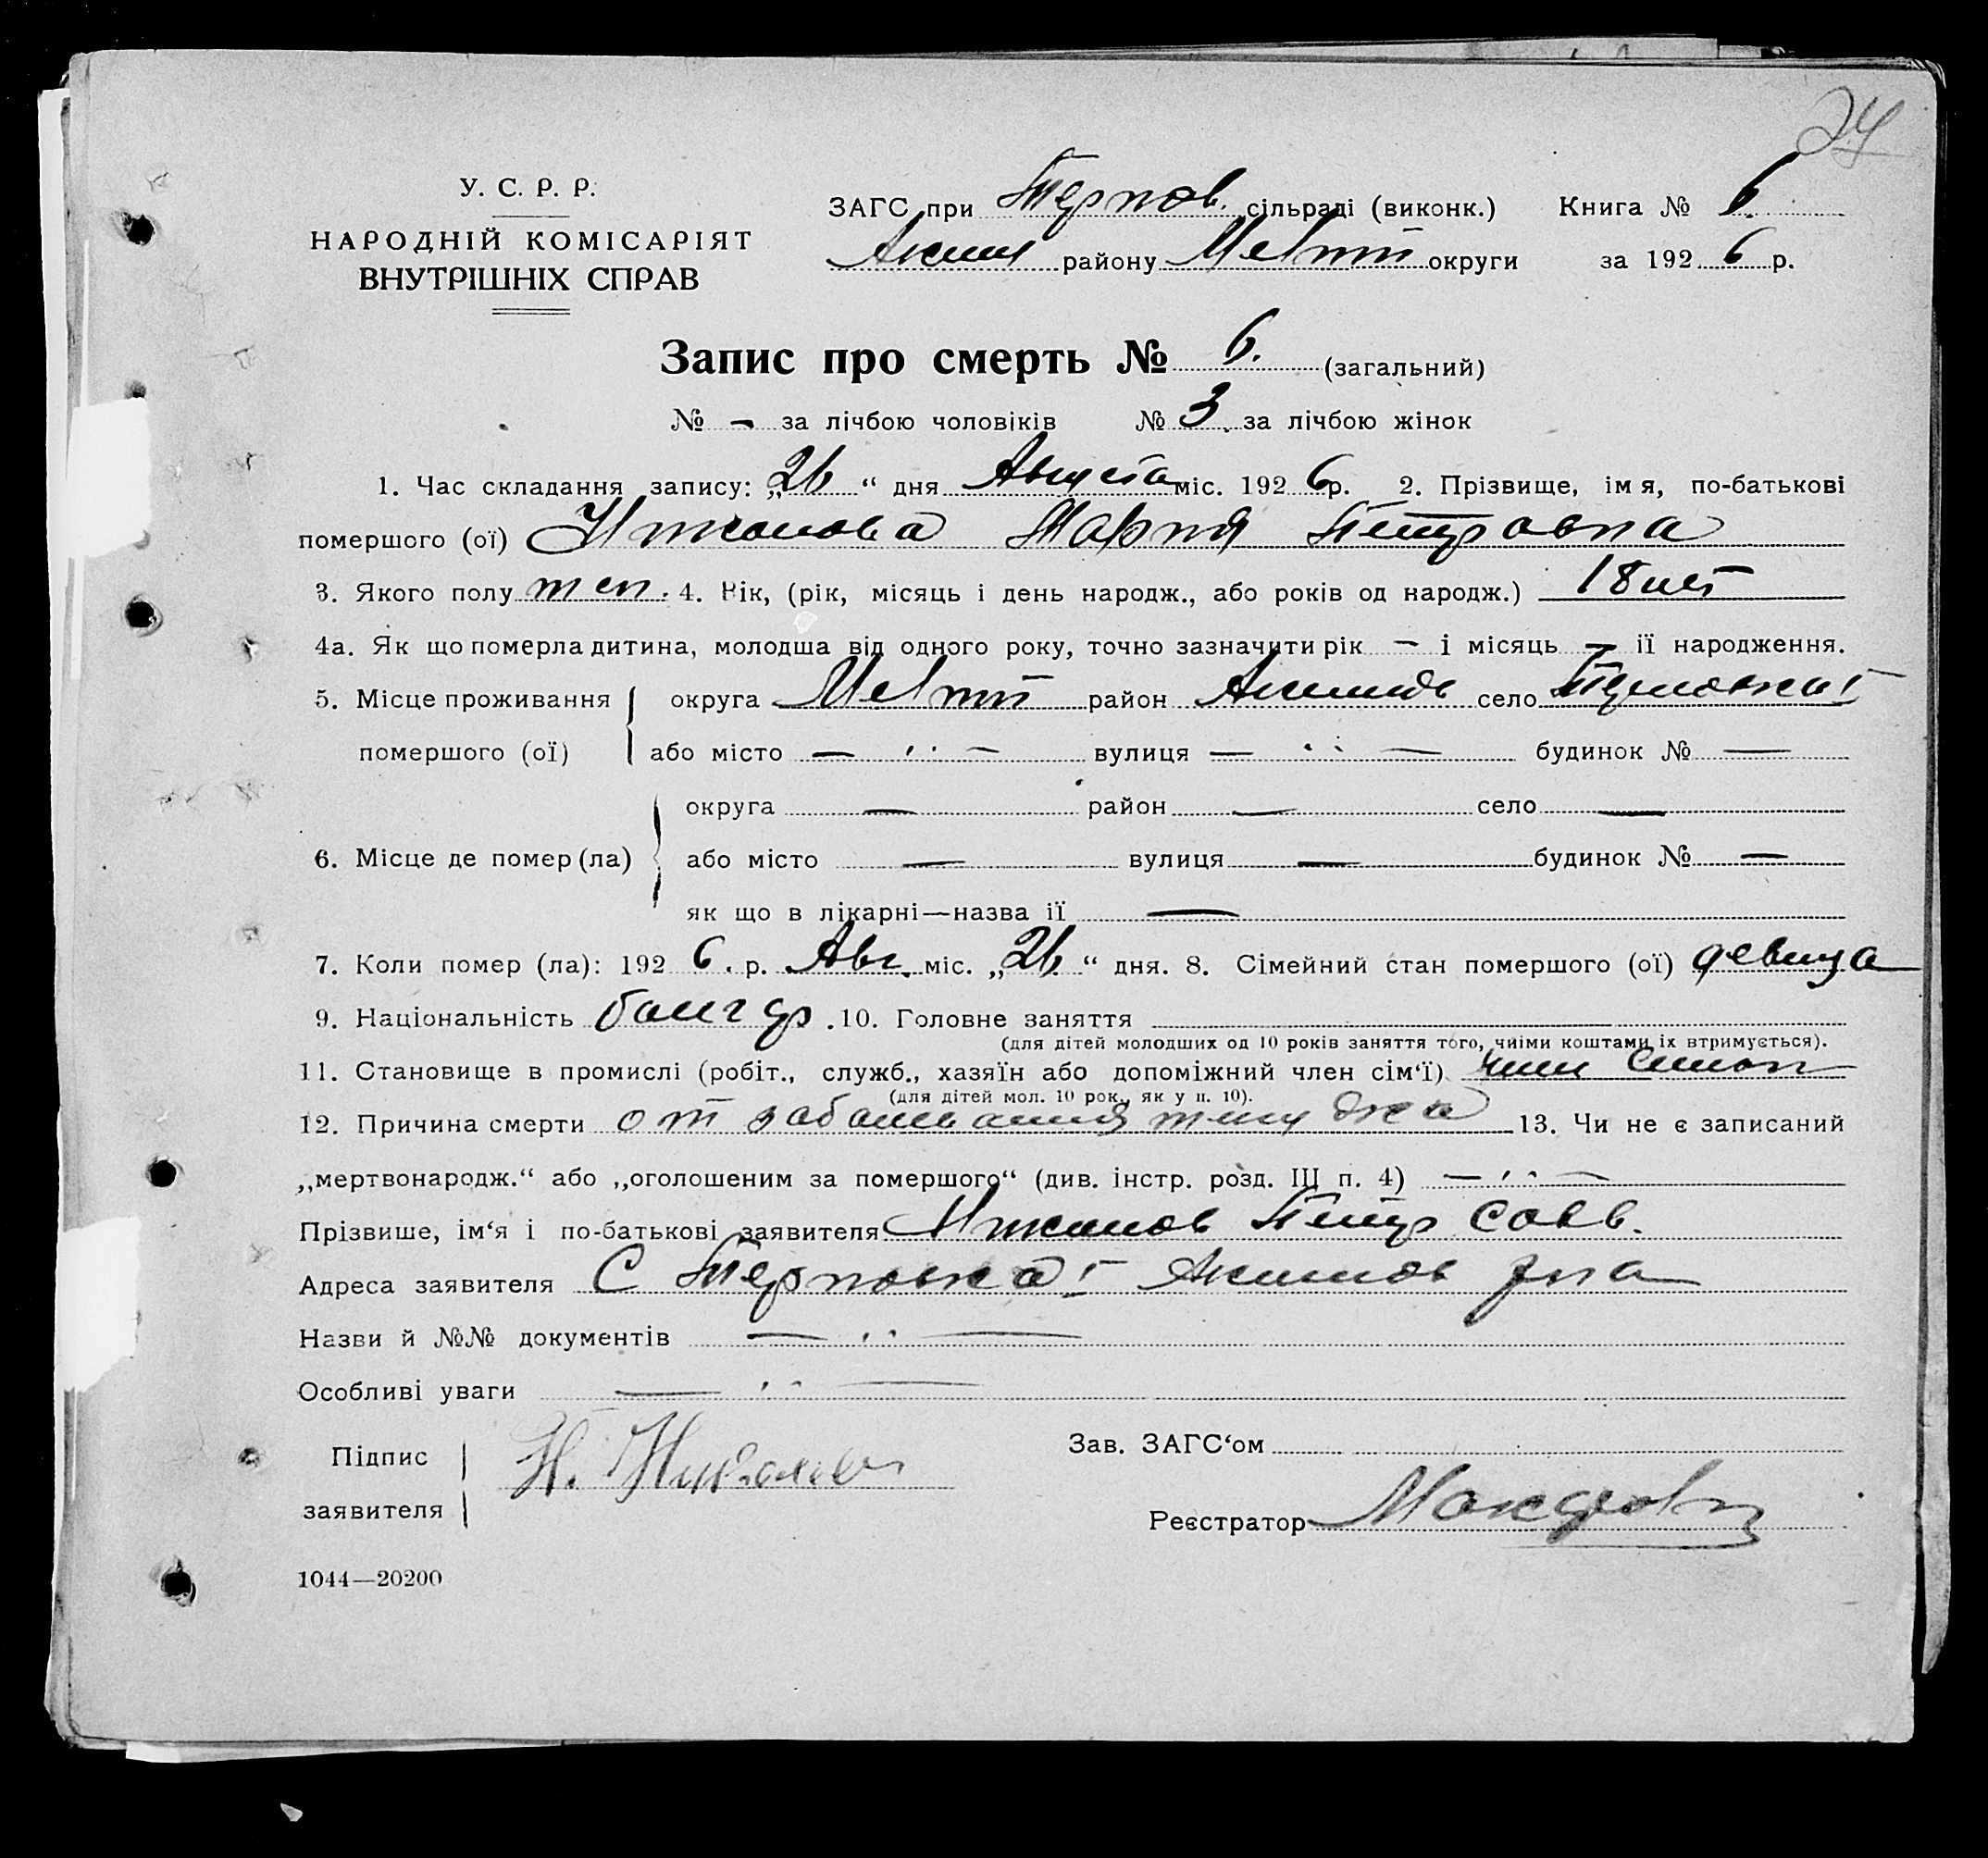 24
У. С. Р. Р.
НАРОДНІЙ КОМІСАРІЯТ
ВНУТРІШНІХ СПРАВ
ЗАГС при Терnов. сільраді (виконк.) Книга № 6
Аким району Мелит округи за 192 6 р.
Запис про смерть № 6. (загальний)
№ - за лічбою чоловіків № 3 за лічбою жінок
1. Час складання запису: „26“ дня Августа міс. 192 6 р. 2. Прізвище, імя, по-батькові
помершого (ої) Мария Петровна
3. Якого полу жен. 4. Вік, (рік, місяць і день народж., або років од народж.) 18 лет
4а. Як що померла дитина, молодша від одного року, точно зазначити рік — і місяць — ії народження.
5. Місце проживання округа Мелит район Акимов село Терновка I
помершого (ої) або місто — " — вулиця — " — будинок № —
округа — район — село —
6. Місце де помер (ла) або місто — вулиця — будинок № —
як що в лікарні—назва ії —
7. Коли помер (ла): 192 6. р. Авг. міс. „26“ дня. 8. Сімейний стан помершого (ої) девица
9. Національність болгар. 10. Головне заняття
(для дітей молодших од 10 років заняття того, чиїми коштами їх втримується).
11. Становище в промислі (робіт., служб., хазяїн або допоміжний член сім‘ї) член
(для дітей мол. 10 рок., як у п. 10).
12. Причина смерти от заболевания желудка 13. Чи не є записаний
„мертвонародж.“ або „оголошеним за помершого“ (див. інстр. розд. III п. 4) — " —
Прізвише, ім‘я і по-батькові заявителя Петр Савв.
Адреса заявителя С Терновка I Акимов р на
Назви й №№ документів — " —
Особливі уваги — " —
Підпис
заявителя
Зав. ЗАГС‘ом
Реєстратор
1044—20200